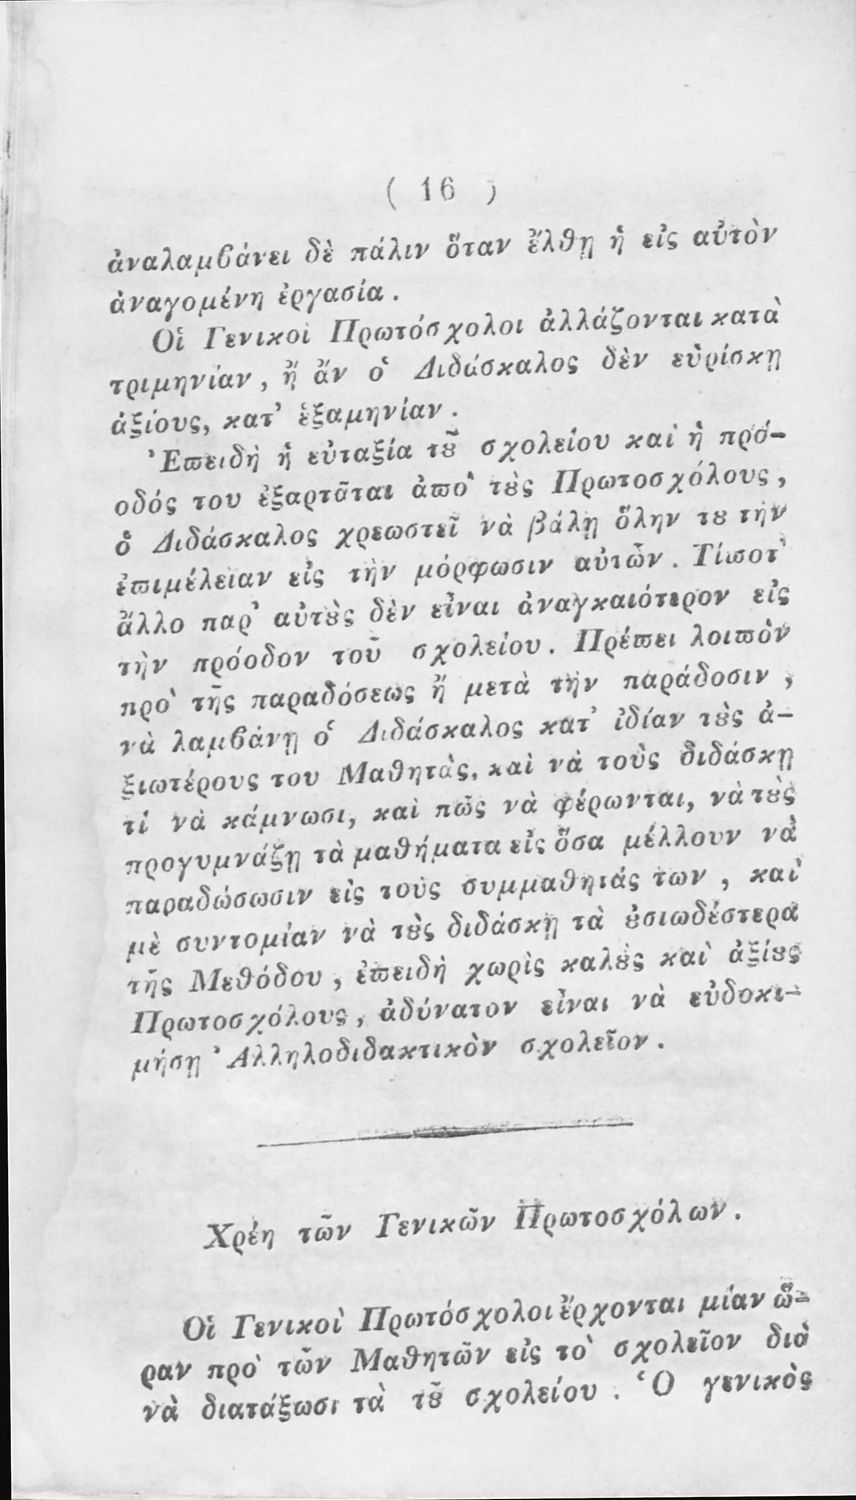 ( 16 )
ἀναλαμβάνει δὲ πάλιν ὅταν ἔλθῃ ἡ εἰς αὐτὸν
ἀναγομένη ἐργασία.
Οἱ Γενικοὶ Πρωτόσχολοι ἀλλάζονται κατὰ
τριμηνίαν, ἢ ἂν ὁ Διδάσκαλος δὲν εὑρίσκῃ
ἀξίους, κατ' ἑξαμηνίαν.
Ἐπειδὴ ἡ εὐταξία τȣ͂ σχολείου καὶ ἡ πρό-
οδός του ἐξαρτᾶται ἀπὸ τȣ̀ς Πρωτοσχόλους,
ὁ Διδάσκαλος χρεωστεῖ νὰ βάλῃ ὅλην τȣ τὴν
ἐπιμέλειαν εἰς τὴν μόρφωσιν αὐτῶν. Τίποτ'
ἄλλο παρ' αὐτȣ̀ς δὲν εἶναι ἀναγκαιότερον εἰς
τὴν πρόοδον τοῦ σχολείου. Πρέπει λοιπὸν
πρὸ τῆς παραδόσεως ἢ μετὰ τὴν παράδοσιν,
νὰ λαμβάνῃ ὁ Διδάσκαλος κατ' ἰδίαν τȣ̀ς ἀ-
ξιωτέρους του Μαθητὰς, καὶ νὰ τοὺς διδάσκῃ
τί νὰ κάμνωσι, καὶ πῶς νὰ φέρωνται, νὰ τȣ̀ς
προγυμνάζῃ τὰ μαθήματα εἰς ὅσα μέλλουν νὰ
παραδώσωσιν εἰς τοὺς συμμαθητάς των, καὶ
μὲ συντομίαν νὰ τȣ̀ς διδάσκῃ τὰ ȣ̓σιωδέστερα
τῆς Μεθόδου, ἐπειδὴ χωρὶς καλȣ̀ς καὶ ἀξίȣς
Πρωτοσχόλους, ἀδύνατον εἶναι νὰ εὐδοκι-
μήσῃ Ἀλληλοδιδακτικὸν σχολεῖον.
Χρέη τῶν Γενικῶν Πρωτοσχόλων.
Οἱ Γενικοὶ Πρωτόσχολοι ἔρχονται μίαν ὥ-
ραν πρὸ τῶν Μαθητῶν εἰς τὸ σχολεῖον διὰ
νὰ διατάξωσι τὰ τȣ͂ σχολείου. Ὁ γενικὸς